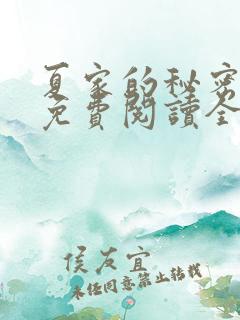 夏家的秘密
免費閱讀全
侯友宜
未经同意禁止转载